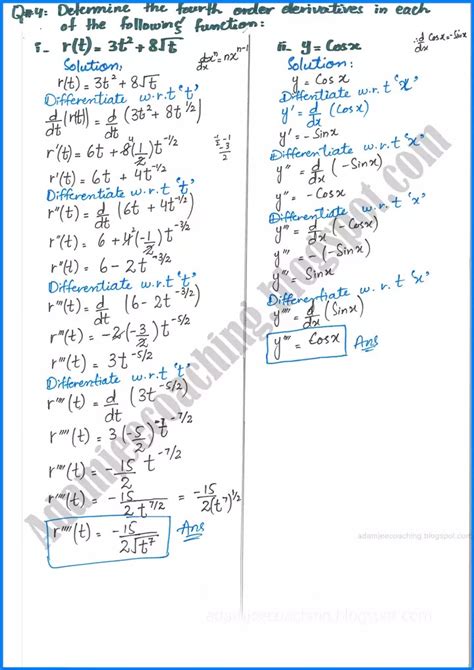 Q#4: Determine the fourth order derivatives in each
of the following function:
i- r(t) = 3t² + 8√t
d/dx xⁿ = nxⁿ⁻¹
Solution,
r(t) = 3t² + 8√t
Differentiate w.r.t 't'
d/dt (r(t)) = d/dt (3t² + 8t^1/2)
r'(t) = 6t + 8(1/2)t^-1/2
r'(t) = 6t + 4t^-1/2
Differentiate w.r.t 't'
r''(t) = d/dt (6t + 4t^-1/2)
r''(t) = 6 + 4(-1/2)t^-3/2
r''(t) = 6 - 2t^-3/2
Differentiate w.r.t 't'
r'''(t) = d/dt (6 - 2t^-3/2)
r'''(t) = -2(-3/2)t^-5/2
r'''(t) = 3t^-5/2
Differentiate w.r.t 't'
r''''(t) = d/dt (3t^-5/2)
r''''(t) = 3(-5/2)t^-7/2
r''''(t) = -15/2 t^-7/2
r''''(t) = -15/2t^7/2 = -15/2(t⁷)^1/2
r''''(t) = -15/2√t⁷ Ans
ii- y = Cosx
∴ d/dx Cosx = -Sinx
Solution:
y = Cosx
Differentiate w.r.t 'x'
y' = d/dx (Cosx)
y' = -Sinx
Differentiate w.r.t 'x'
y'' = d/dx (-Sinx)
y'' = -Cosx
Differentiate w.r.t 'x'
y''' = d/dx (-Cosx)
y''' = -(-Sinx)
y''' = Sinx
Differentiate w.r.t 'x'
y'''' = d/dx (Sinx)
y'''' = Cosx Ans
Adamjeecoaching.blogspot.com
adamjeecoaching.blogspot.com
adamjeecoaching.blogspot.com